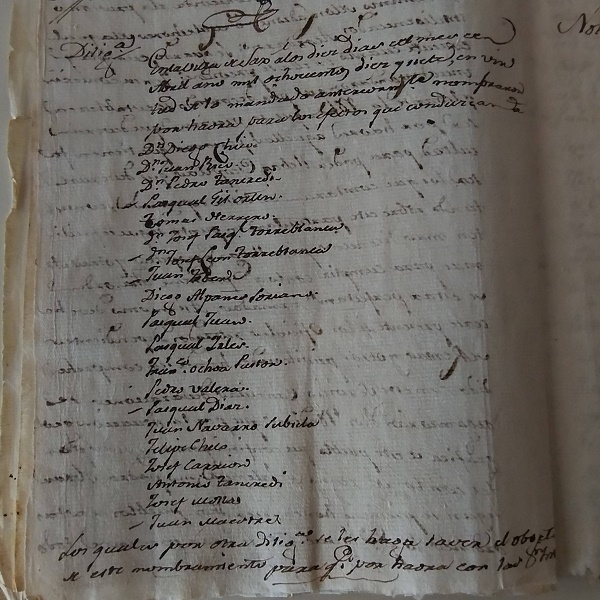 Dilig.ª
En la Villa de Sax a los diez dias del mes de
Abril año mil ochocientos diez y siete: en vir
tud de lo mandado anteriormte nombraron
por haora para los efectos que conduzcan a
Dn Diego Chico.
Dn Juan Rico
Dn Pedro Tancredi.
Pasqual Gil Ortin.
Tomas Herrero.
Dn Josef Pasql Torreblanca
Dn Josef Leon Torreblanca
Juan
Diego Alpañes Soriano.
Pasqual Juan.
Pasqual
Franco Ochoa Pastor.
Pedro Valera.
Pasqual Diaz.
Juan Navarro Subiela
Felipe Chico
Josef Carrion
Antonio Tancredi
Josef Molla
Juan Maestre
Los quales por otra diliga se les haga saver el objeto
de este nombramiento para qe por haora con las